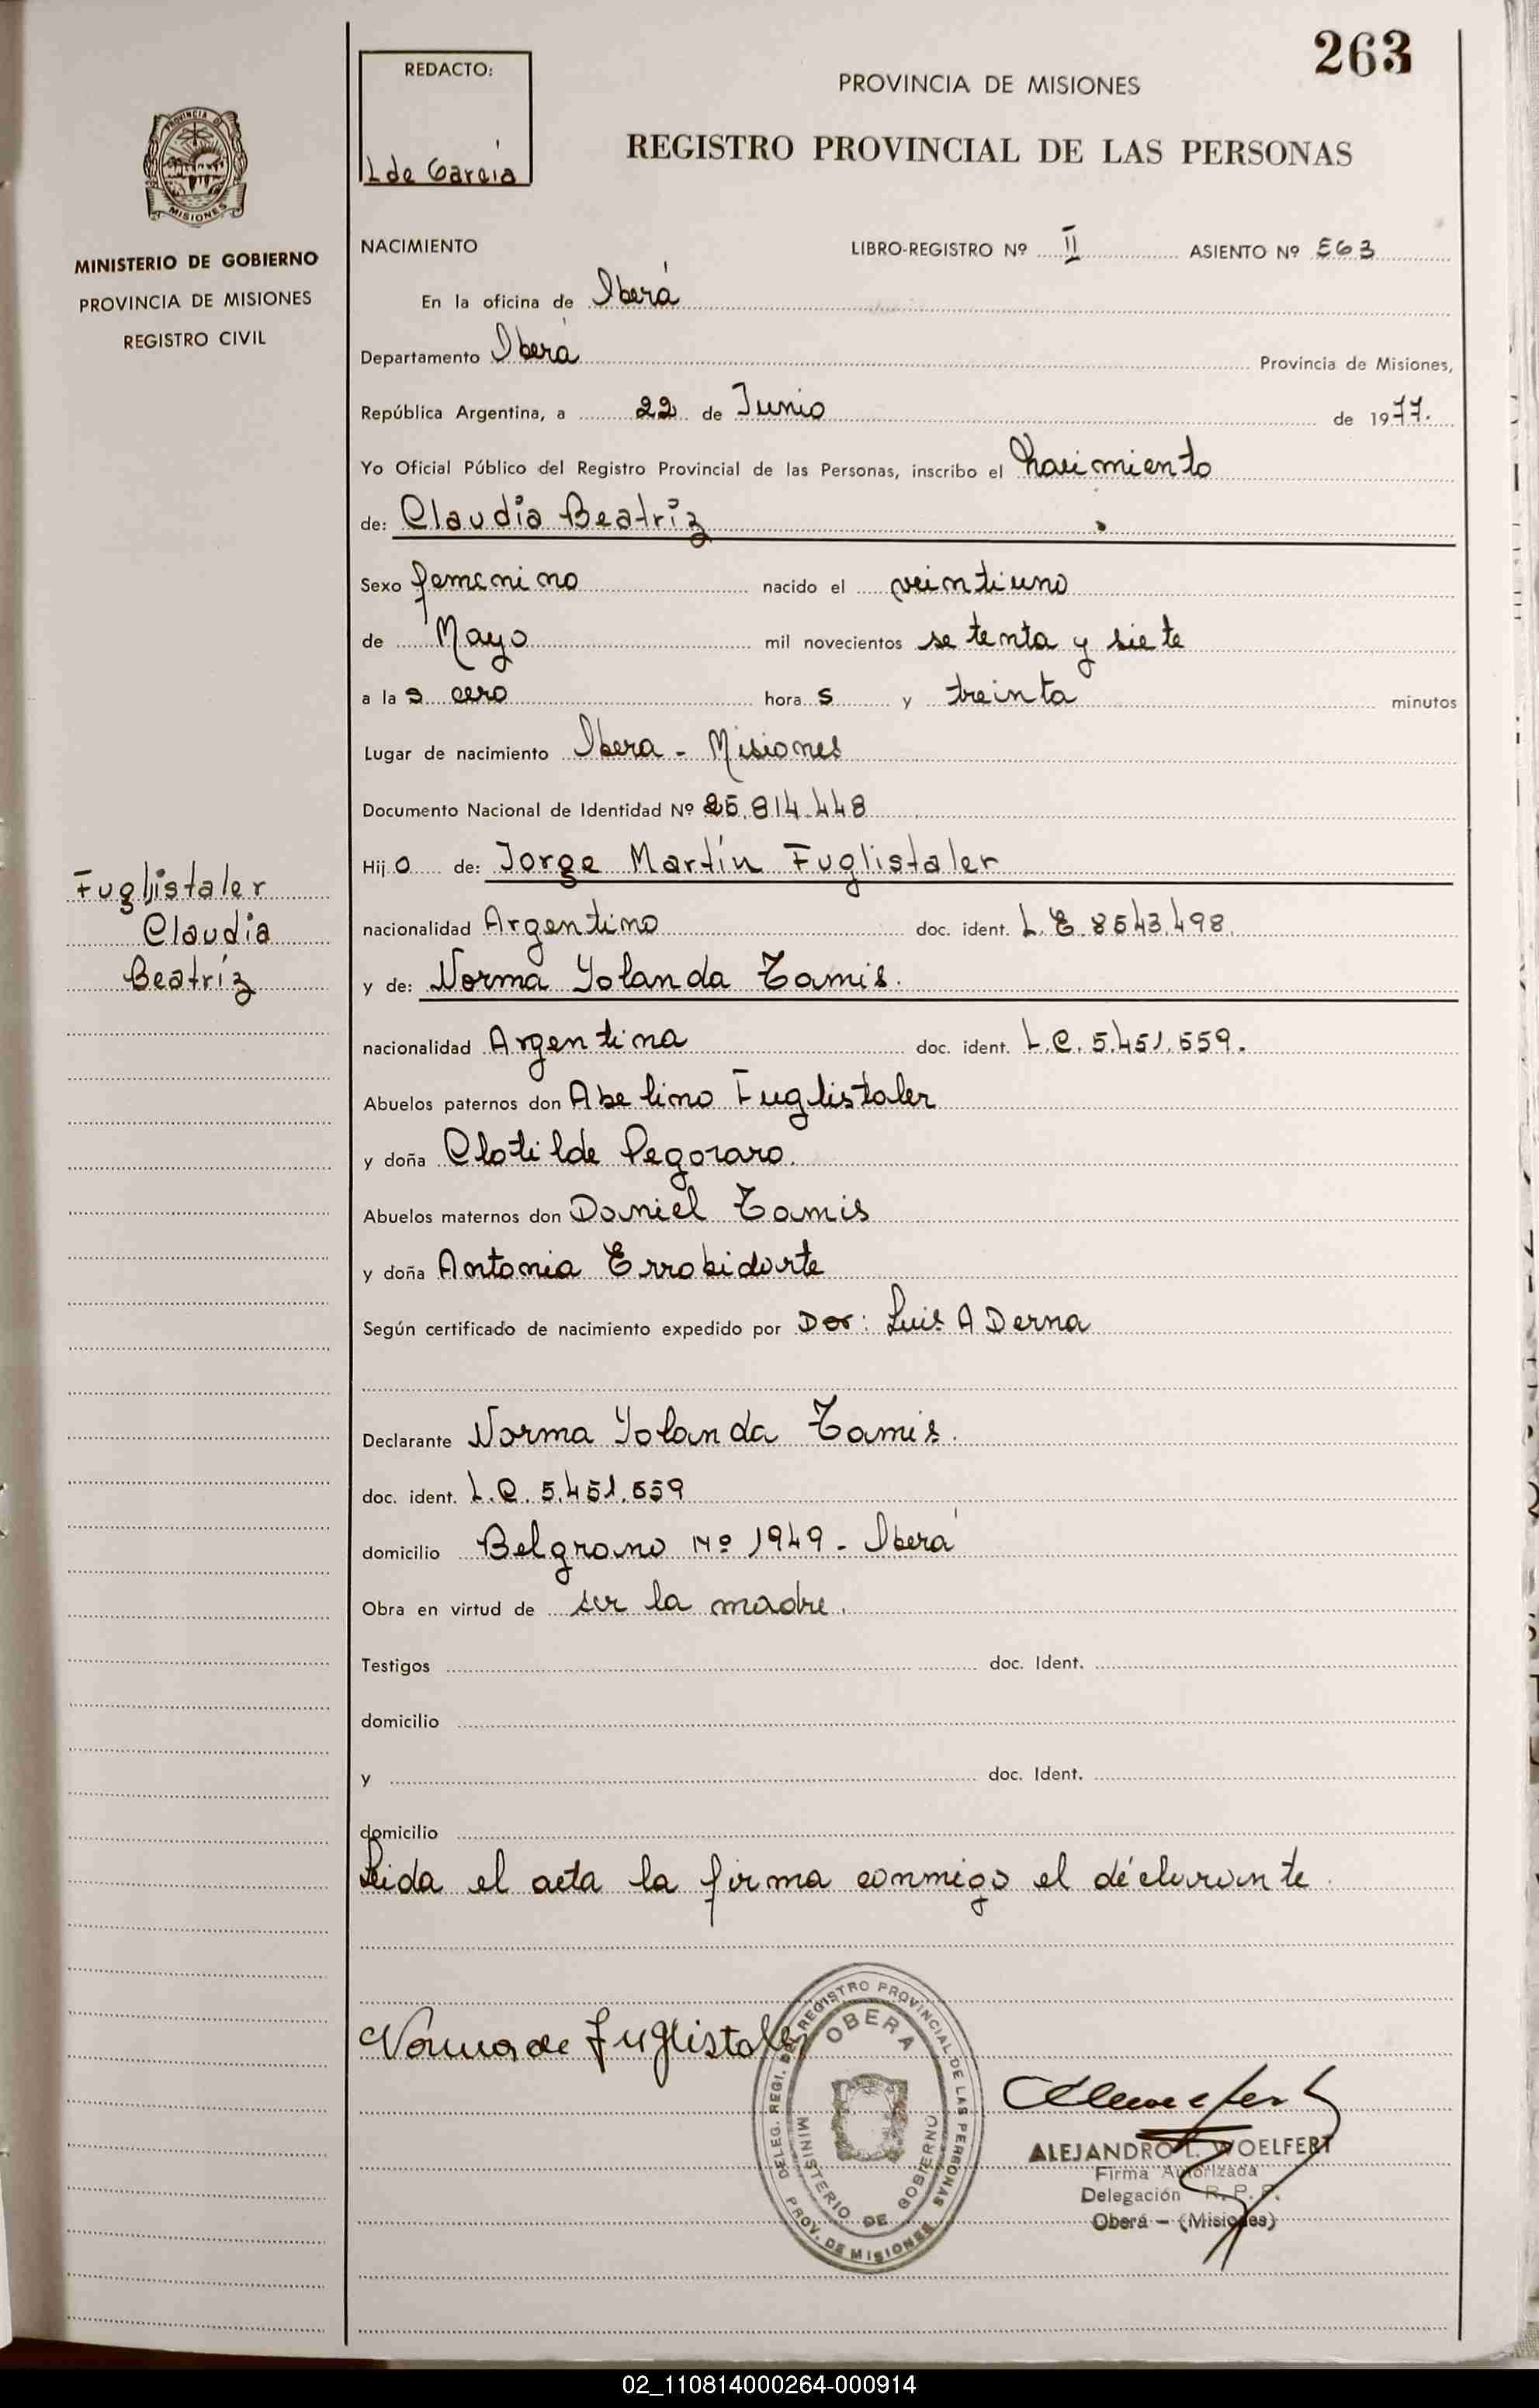 263
REDACTO:
L de García
PROVINCIA DE MISIONES
REGISTRO PROVINCIAL DE LAS PERSONAS
PROVINCIA DE
MISIONES
MINISTERIO DE GOBIERNO
PROVINCIA DE MISIONES
REGISTRO CIVIL
NACIMIENTO LIBRO-REGISTRO Nº II ASIENTO Nº 563
En la oficina de Oberá
Departamento Oberá Provincia de Misiones,
República Argentina, a 22 de Junio de 1977.
Yo Oficial Público del Registro Provincial de las Personas, inscribo el Nacimiento
de: Claudia Beatríz
Sexo femenino nacido el veintiuno
de Mayo mil novecientos setenta y siete
a las cero horas y treinta minutos
Lugar de nacimiento Obera - Misiones
Documento Nacional de Identidad Nº 25.814.448
Hijo de: Jorge Martín Fuglistaler
nacionalidad Argentino doc. ident. L.E. 8543.498.
y de: Norma Yolanda Tamis.
nacionalidad Argentina doc. ident. L.C. 5.451.559.
Abuelos paternos don Abelino Fuglistaler
y doña Clotilde Pegoraro.
Abuelos maternos don Daniel Tamis
y doña Antonia Errobidarte
Según certificado de nacimiento expedido por Dor: Luis A Derna
Declarante Norma Yolanda Tamis.
doc. ident. L.C. 5.451.559
domicilio Belgrano Nº 1949 - Oberá
Obra en virtud de ser la madre.
Testigos doc. Ident.
domicilio
y doc. Ident.
domicilio
Leida el acta la firma conmigo el declarante.
Fuglistaler
Claudia
Beatríz
Norma de Fuglistaler
DELEG. REGI. DEL REGISTRO PROVINCIAL DE LAS PERSONAS
OBERA
MINISTERIO DE GOBIERNO
PROV. DE MISIONES
ALEJANDRO L. WOELFERT
Firma Autorizada
Delegación R. P. P.
Oberá - (Misiones)
02_110814000264-000914